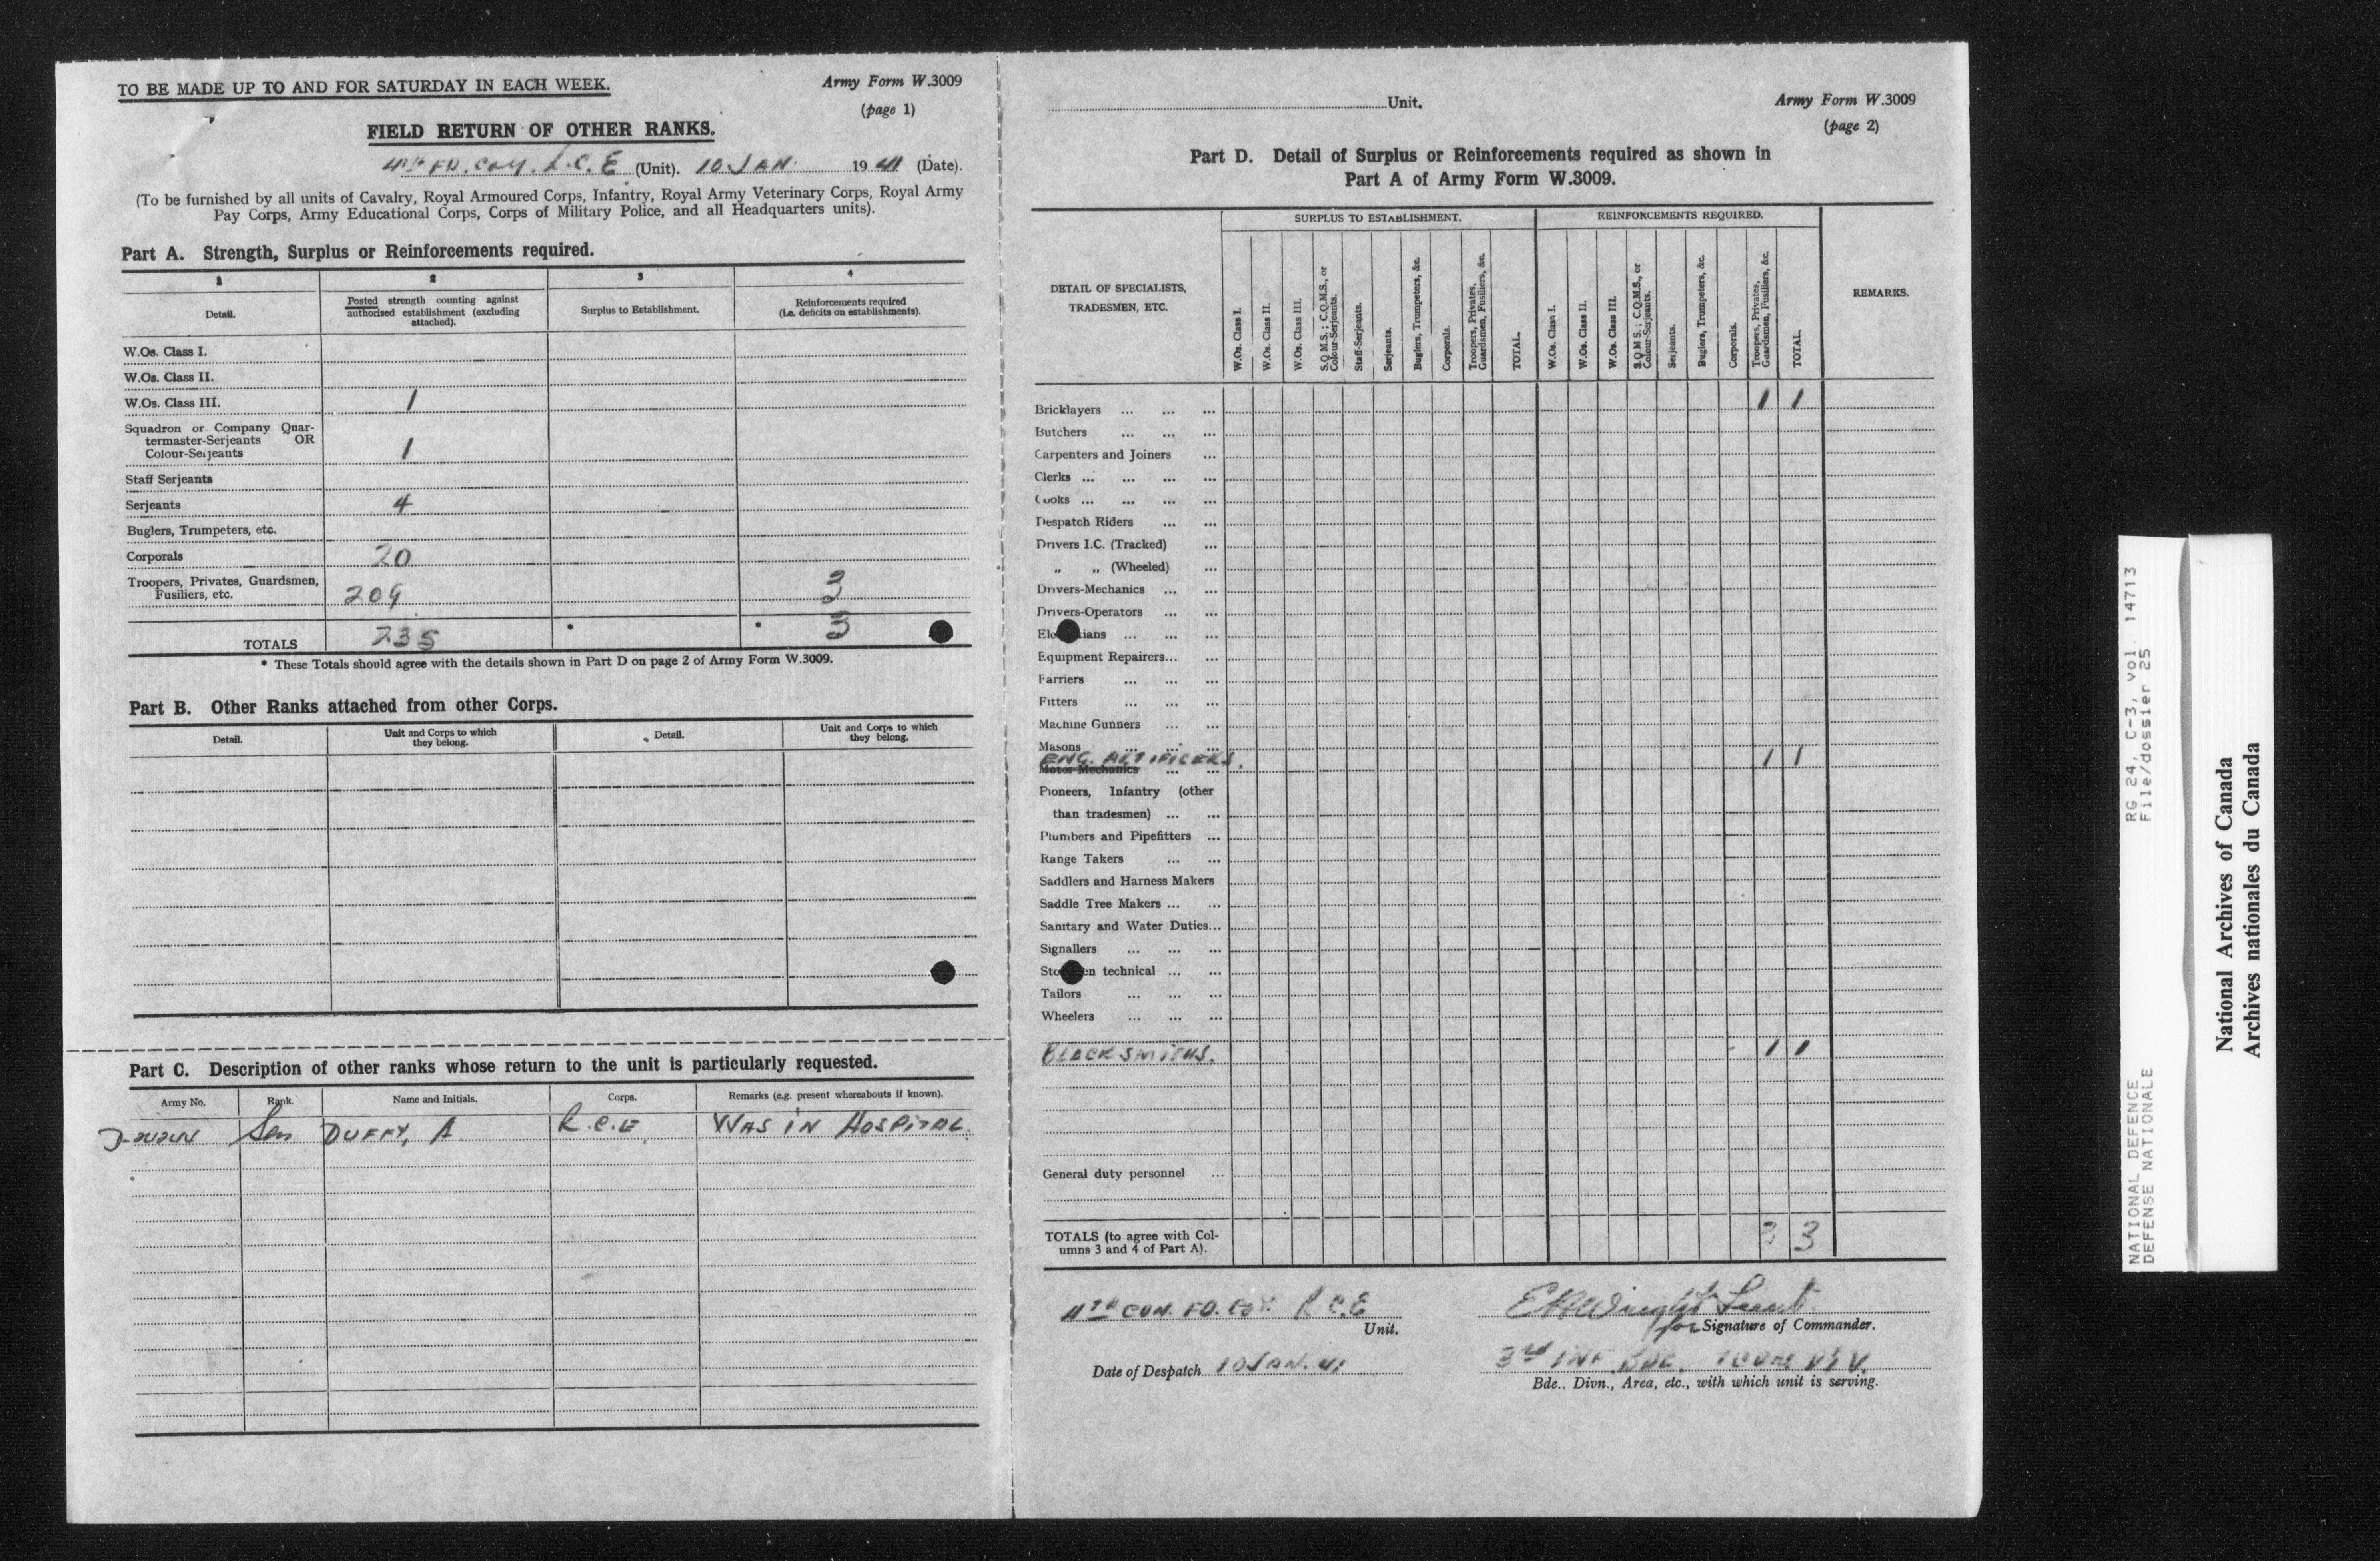 TO BE MADE UP TO AND FOR SATURDAY IN EACH WEEK.
Army Form W.3009
(page 1)
FIELD RETURN OF OTHER RANKS.
FD. COY. R.C.E (Unit). 10 JAN 1941 (Date).
(To be furnished by all units of Cavalry, Royal Armoured Corps, Infantry, Royal Army Veterinary Corps, Royal Army
Pay Corps, Army Educational Corps, Corps of Military Police, and all Headquarters units).
Part A. Strength, Surplus or Reinforcements required.
1 2 3 4
Detail.
Posted strength counting against
authorised establishment (excluding
attached).
Surplus to Establishment.
Reinforcements required
(i.e. deficits on establishments).
W.Os. Class I.
W.Os. Class II.
W.Os. Class III. 1
Squadron or Company Quar-
termaster-Serjeants OR
Colour-Serjeants 1
Staff Serjeants
Serjeants 4
Buglers, Trumpeters, etc.
Corporals 20
Troopers, Privates, Guardsmen,
Fusiliers, etc. 209 3
TOTALS 235 * * 3
* These Totals should agree with the details shown in Part D on page 2 of Army Form W.3009.
Part B. Other Ranks attached from other Corps.
Detail.
Unit and Corps to which
they belong.
Detail.
Unit and Corps to which
they belong.
Part C. Description of other ranks whose return to the unit is particularly requested.
Army No. Rank. Name and Initials. Corps. Remarks (e.g. present whereabouts if known).
DUFFY, A R.C.E WAS IN HOSPITAL.
Unit.
Army Form W.3009
(page 2)
Part D. Detail of Surplus or Reinforcements required as shown in
Part A of Army Form W.3009.
DETAIL OF SPECIALISTS,
TRADESMEN, ETC.
SURPLUS TO ESTABLISHMENT.
W.Os. Class I.
W.Os. Class II.
W.Os. Class III.
S.Q.M.S.; C.Q.M.S., or
Colour-Serjeants.
Staff-Serjeants.
Serjeants.
Buglers, Trumpeters, &c.
Corporals.
Troopers, Privates,
Guardsmen, Fusiliers, &c.
TOTAL.
REINFORCEMENTS REQUIRED.
W.Os. Class I.
W.Os. Class II.
W.Os. Class III.
S.Q.M.S.; C.Q.M.S., or
Colour-Serjeants.
Serjeants.
Buglers, Trumpeters, &c.
Corporals.
Troopers, Privates,
Guardsmen, Fusiliers, &c.
TOTAL.
REMARKS.
Bricklayers ... ... ... 1 1
Butchers ... ... ...
Carpenters and Joiners ...
Clerks ... ... ... ...
Cooks ... ... ... ...
Despatch Riders ... ...
Drivers I.C. (Tracked) ...
„ „ (Wheeled) ...
Drivers-Mechanics ... ...
Drivers-Operators ... ...
Ele tians ... ... ...
Equipment Repairers... ...
Farriers ... ... ...
Fitters ... ... ...
Machine Gunners ... ...
Masons ... ... ...
ENG. ARTIFICERS. 1 1
Motor Mechanics ... ...
Pioneers, Infantry (other
than tradesmen) ... ...
Plumbers and Pipefitters ...
Range Takers ... ...
Saddlers and Harness Makers
Saddle Tree Makers ... ...
Sanitary and Water Duties...
Signallers ... ... ...
Sto en technical ... ...
Tailors ... ... ...
Wheelers ... ... ...
BLACKSMITHS. 1 1
General duty personnel ...
TOTALS (to agree with Col-
umns 3 and 4 of Part A). 3 3
FD. COY. R.C.E
Unit.
for Signature of Commander.
Date of Despatch 10 JAN. 41
3rd INF. BDE. DIV.
Bde., Divn., Area, etc., with which unit is serving.
NATIONAL DEFENCE RG 24, C-3, vol. 14713
DEFENSE NATIONALE File/dossier 25
National Archives of Canada
Archives nationales du Canada